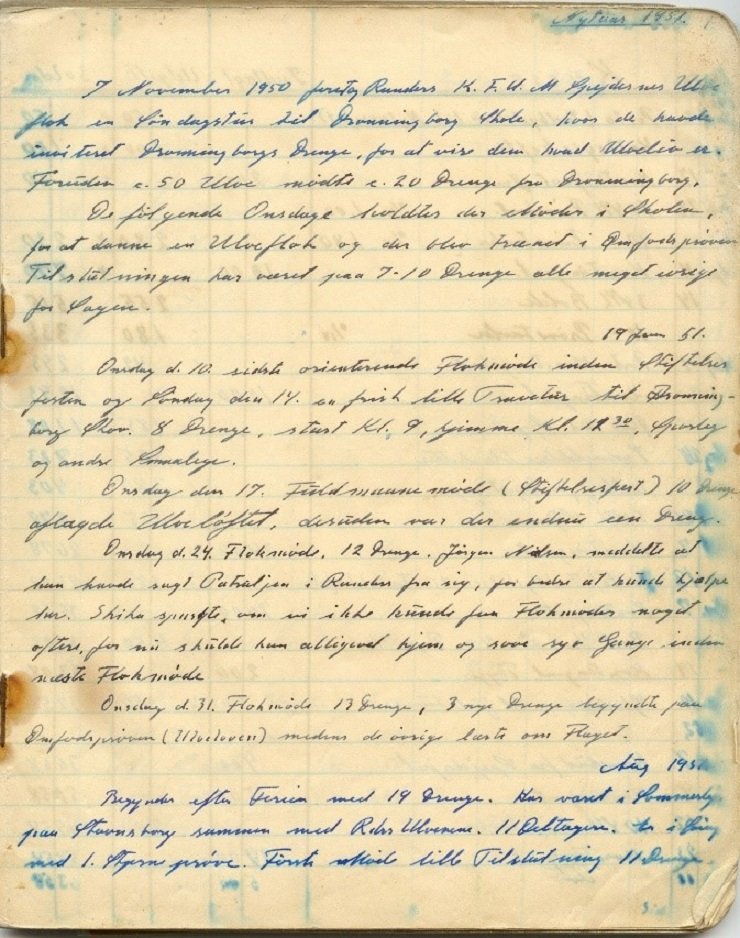 Nytaar 1951.
7 November 1950 foretog Randers K. F. U. M Spejdernes Ulve-
flok en Söndagstur til Dronningborg Skole, hvor de havde
inviteret Dronningborgs Drenge, for at vise dem hvad Ulveliv er.
Foruden c. 50 Ulve mödte c. 20 Drenge fra Dronningborg.
De fölgende Onsdage holdtes der Möder i Skolen,
for at danne en Ulveflok og der blev trænet i Ömfodspröven
Tilslutningen har været paa 7-10 Drenge alle meget ivrige
for Sagen.
19 Jan 51.
Onsdag d. 10. sidste orienterende Flokmöde inden Stiftelses
festen og Söndag den 14. en frisk lille Travetur til Dronning-
borg Skov. 8 Drenge, start Kl. 9, hjemme Kl. 12 30, Sporleg
og andre Smaalege.
Onsdag den 17. Fuldmaanemöde (Stiftelsesfest) 10 Drenge
aflagde Ulvelöftet, desuden var der endnu een Dreng.
Onsdag d. 24. Flokmöde, 12 Drenge. Jörgen Nilsen, meddelte at
han havde sagt Patruljen i Randers fra sig, for bedre at kunde hjælpe
her. Shiha spurgte, om vi ikke kunde faa Flokmöder noget
oftere, for nu skulde han alligevel hjem og sove syv Gange inden
næste Flokmöde
Onsdag d. 31. Flokmöde 13 Drenge, 3 nye Drenge begyndte paa
Ömfodspröven (Ulveloven) medens de övrige lærte om Flaget.
Aug 1951
Begynder efter Ferien med 19 Drenge. Har været i Sommerlejr
paa Stavnsborg sammen med Rdrs Ulvene. 11 Deltagere. Er i Gang
med 1. Stjerne pröve. Först Möde lille Tilslutning 11 Drenge.